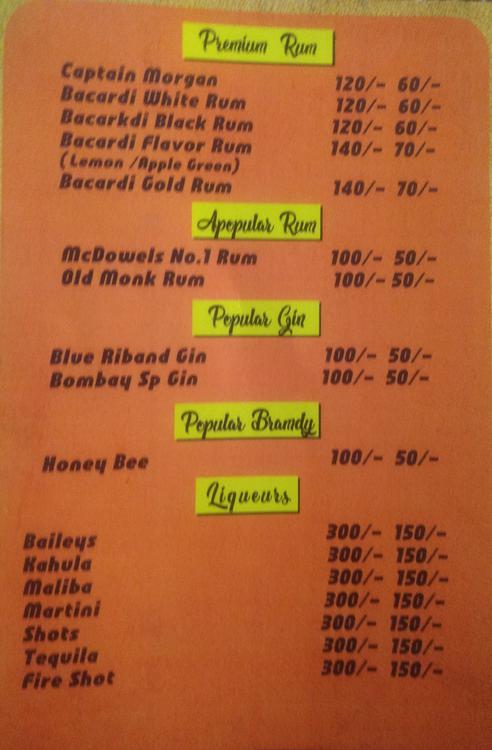 Premium Rum
Captain Morgan 120/- 60/-
Bacardi White Rum 120/- 60/-
Bacarkdi Black Rum 120/- 60/-
Bacardi Flavor Rum 140/- 70/-
(Lemon /Apple Green)
Bacardi Gold Rum 140/- 70/-
Apopular Rum
McDowels No.1 Rum 100/- 50/-
Old Monk Rum 100/- 50/-
Popular Gin
Blue Riband Gin 100/- 50/-
Bombay Sp Gin 100/- 50/-
Popular Bramdy
Honey Bee 100/- 50/-
Liqueurs
Baileys 300/- 150/-
Kahula 300/- 150/-
Maliba 300/- 150/-
Martini 300/- 150/-
Shots 300/- 150/-
Tequila 300/- 150/-
Fire Shot 300/- 150/-